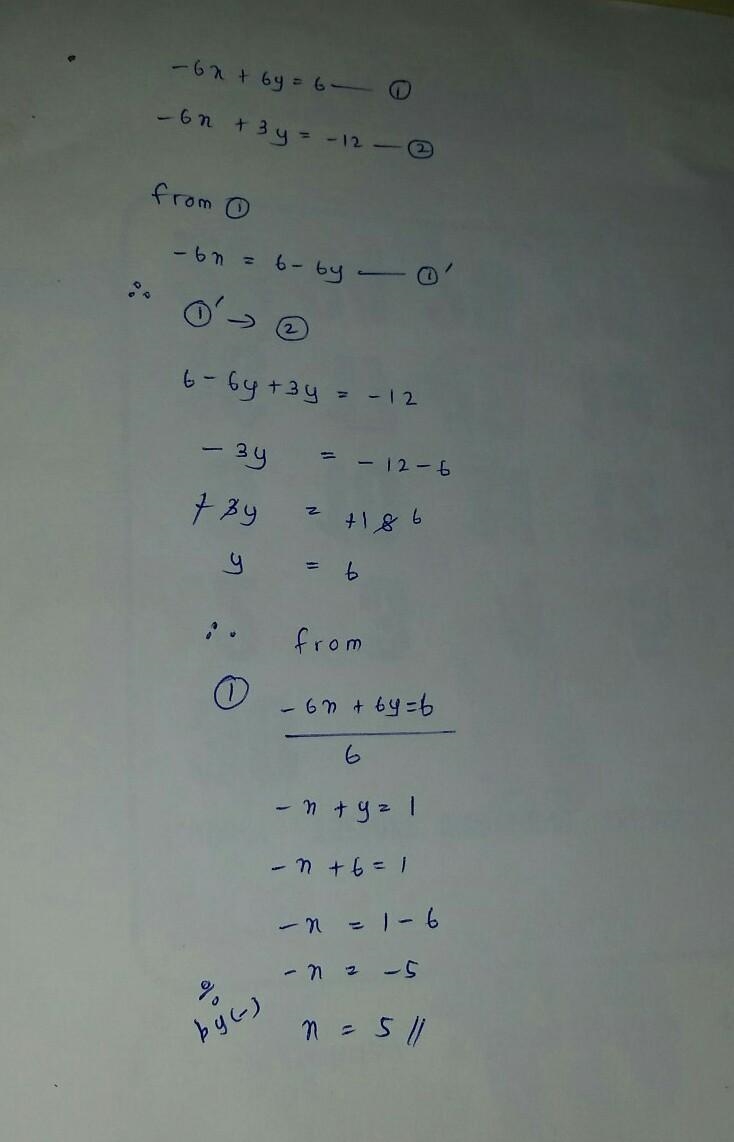 -6x + 6y = 6 — ①
-6x + 3y = -12 — ②
from ①
-6x = 6 - 6y — ①'
∴ ①' → ②
6 - 6y + 3y = -12
- 3y = -12 - 6
+ 3y = +18 6
y = 6
∴ from
① -6x + 6y = 6
6
-x + y = 1
-x + 6 = 1
-x = 1 - 6
-x = -5
% by (-) x = 5 //